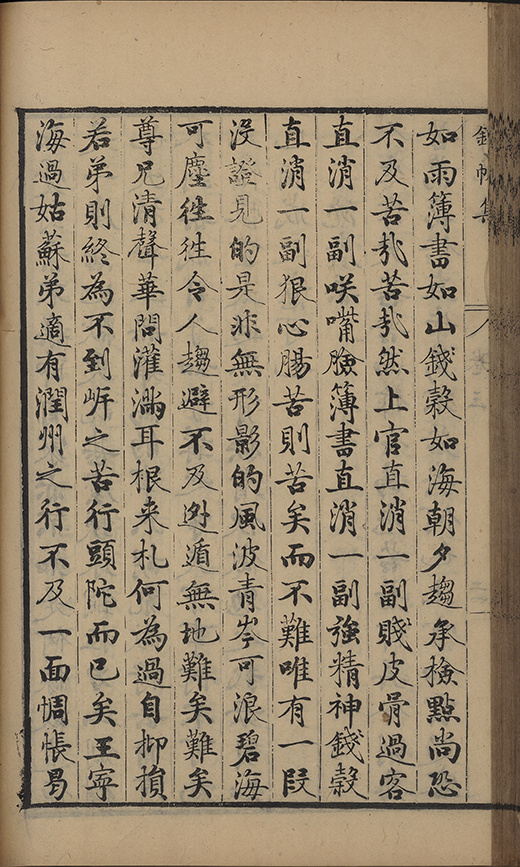 錦帆集
如雨簿書如山錢穀如海朝夕趨承檢點尚恐
不及苦哉苦哉然上官直消一副賤皮骨過客
直消一副咲嘴臉簿書直消一副強精神錢穀
直消一副狠心腸苦則苦矣而不難唯有一段
没證見的是非無形影的風波青岑可浪碧海
可塵徃徃令人趨避不及迯遁無地難矣難矣
尊兄清聲華問灌滿耳根来札何為過自抑損
若弟則終為不到岸之苦行頭陀而已矣王寧
海過姑蘇弟適有潤州之行不及一面惆悵曷